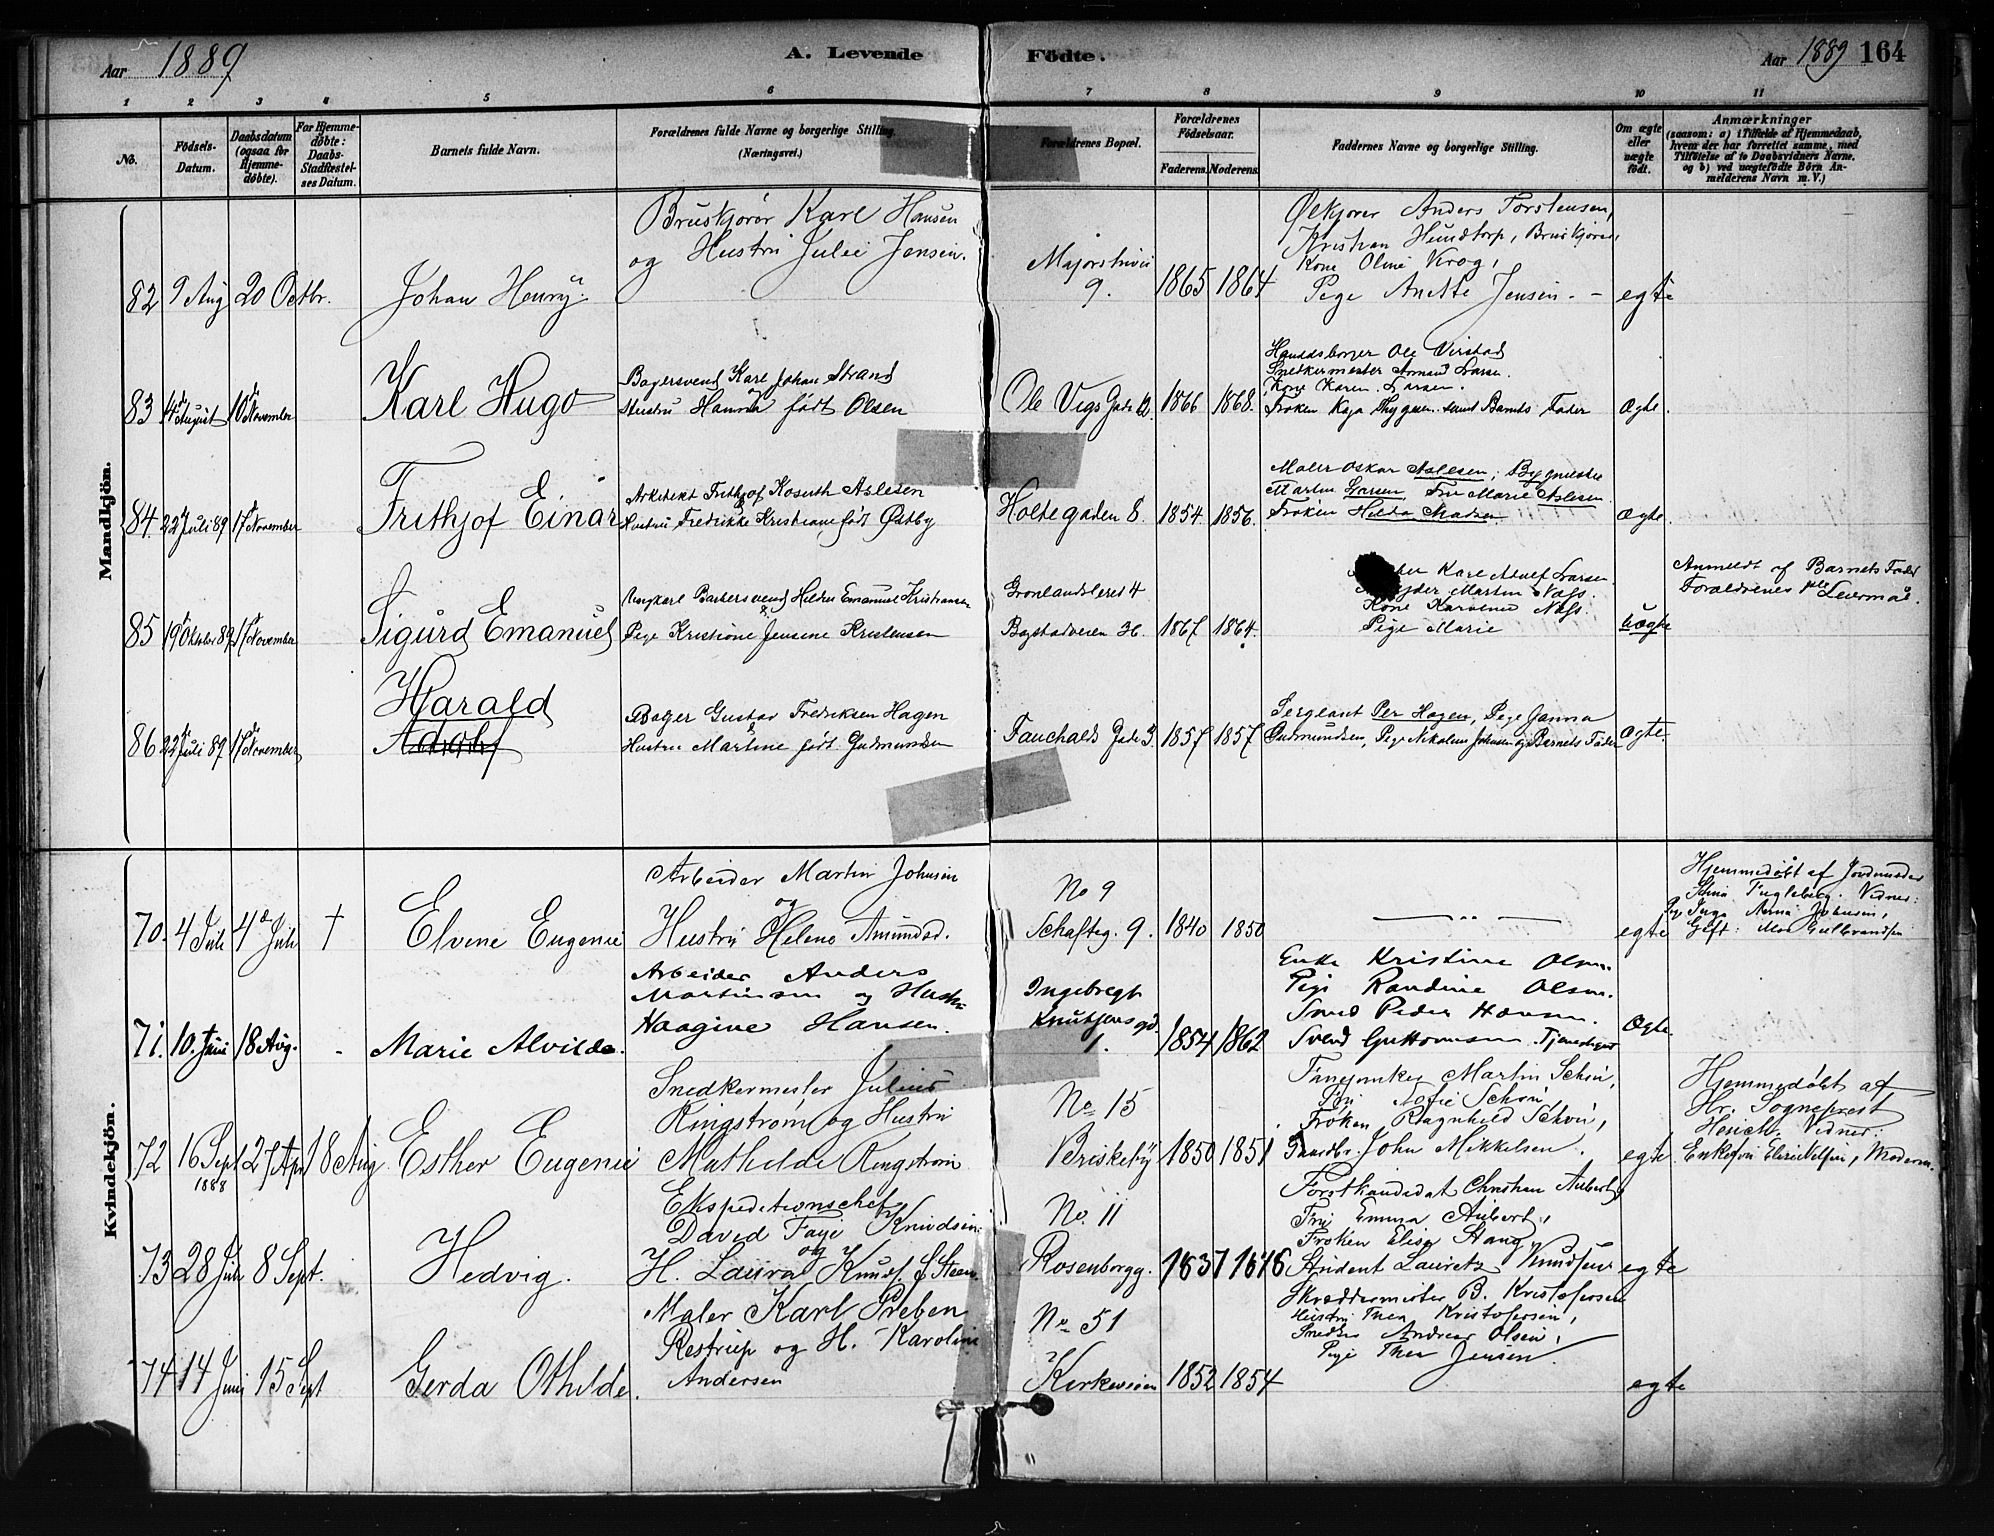 Aar 1889
A. Levende Födte.
Aar 1889 164
1 2 3 4 5 6 7 8 9 10 11
No.
Födsels-Datum.
Daabsdatum (ogsaa for Hjemmedöbte).
For Hjemmedøbte: Daabs-Stadfæstelses Datum.
Barnets fulde Navn.
Forældrenes fulde Navne og borgerlige Stilling.
(Næringsvei.)
Forældrenes Bopæl.
Forældrenes Födselsaar.
Faderens. Moderens.
Faddernes Navne og borgerlige Stilling.
Om ægte eller uægte födt.
Anmærkninger
(saasom: a) i Tilfælde af Hjemmedaab, hvem der har forrettet samme, med Tilföielse af to Daabsvidners Navne, og b) ved uægtefödte Börn Anmelderens Navn m. V.)
Mandkjön.
Bruskjører Karl Hansen
og Hustru Julie Jensen.
82 9 Aug 20 Octbr. Johan Henry.
Majorstuvei
9. 1865 1864
Ølkjører Anders Torstensen,
Kristian Hundtorp, Bruskjører,
Kone Oline Krog,
Pige Anette Jensen. - egte
83 4de August 10de November Karl Hugo
Bagersvend Karl Johan Strand
og
Hustru Hanna født Olsen
Ole Vigs Gade 12. 1866 1868.
Handelsborger Ole Virstad
Snedkermester Larsen
Kone Karen Larsen.
Frøken Kaja Thygesen samt Barnets Fader Ægte.
84. 22 Juli 89 17 November Frithjof Einar
Arkitekt Frithjof Kosuth Aslesen
Hustru Fredrikke Kristiane født Østby
Holtegaden 8. 1854 1856.
Maler Oskar Aslesen,
Martin Larsen Fru Marie Aslesen
Frøken Hilda Madsen Ægte.
85 19 Oktober 89 17 November Sigurd Emanuel
Ungkarl Barbersvend Hilder Emanuel Kristiansen
Pige Kristiane Jensine Kristensen
Grønlandsleret 4
Bogstadveien 36. 1867 1864.
Karl Adolf Larsen
Martin Næss.
Kone Karoline Næss.
Pige Marie
uægte
Anmeldt af Barnets Fader
Forældrenes Leiermaal.
86 22 Juli 89 17 November Harald
Adolf
Bager Gustav Fredriksen Hagen
Hustru Martine født Gudmundsen
Fauchalds Gade 3. 1857 1857
Sergeant Per Hagen, Pige Janna
Gudmundsen, Pige Nikoline Johnsen og Barnets Fader Ægte.
Kvindekjön.
70. 4 Juli 4de Juli † Elvine Eugenie
Arbeider Martin Johnsen
og
Hustru Helene Amundsd.
No 9
Schafteg. 9. 1840 1850
— " —
egte
Hjemmedøbt af Jordmoder
Stina Fugleberg. Vidner:
Pige Inga Anna Johnsen,
Gift: Gulbrandsen
71. 10. Juni 18 Aug. - Marie Alvilde.
Arbeider Anders
Martinsen og Hustru
Haagine Hansen.
Ingebregt
Knutzens gd.
1. 1854 1862
Enke Kristine Olsen.
Pige Randine Olsen.
Smed Peder Hansen.
Svend Guttormsen Ægte
72 16 Sept 1888 27 Apr 18 Aug Esther Eugenie
Snedkermester Julius
Ringstrøm og Hustru
Mathilde Ringstrøm
No 15
Briskeby 1850 1851
Martin Schøn,
Fru Sofie Schøn,
Frøken Ragnhild Schøn,
Gaardbr. John Mikkelsen. egte
Hjemmedøbt af
Hr. Sogneprest
Vidner:
Enkefru
73 28 Juli 8 Sept. Hedvig.
Ekspeditionschef
David Faye Knudsen
og
H. Laura Knuds. f. Steen
No. 11
Rosenborgg. 1837 1846
Forstkandidat Christian Aubert,
Fru Emma Aubert,
Frøken Elisa Stang
Student Lauretz Knudsen egte
74 14 Juni 15 Sept Gerda Othilde.
Maler Karl Preben
Restrup og H. Karoline
Andersen
No. 51
Kirkeveien 1852 1854
Skræddermester B. Kristofersen
Hustru Thea Kristofersen,
Snedker Andreas Olsen,
Pige Thea Jensen.
egte